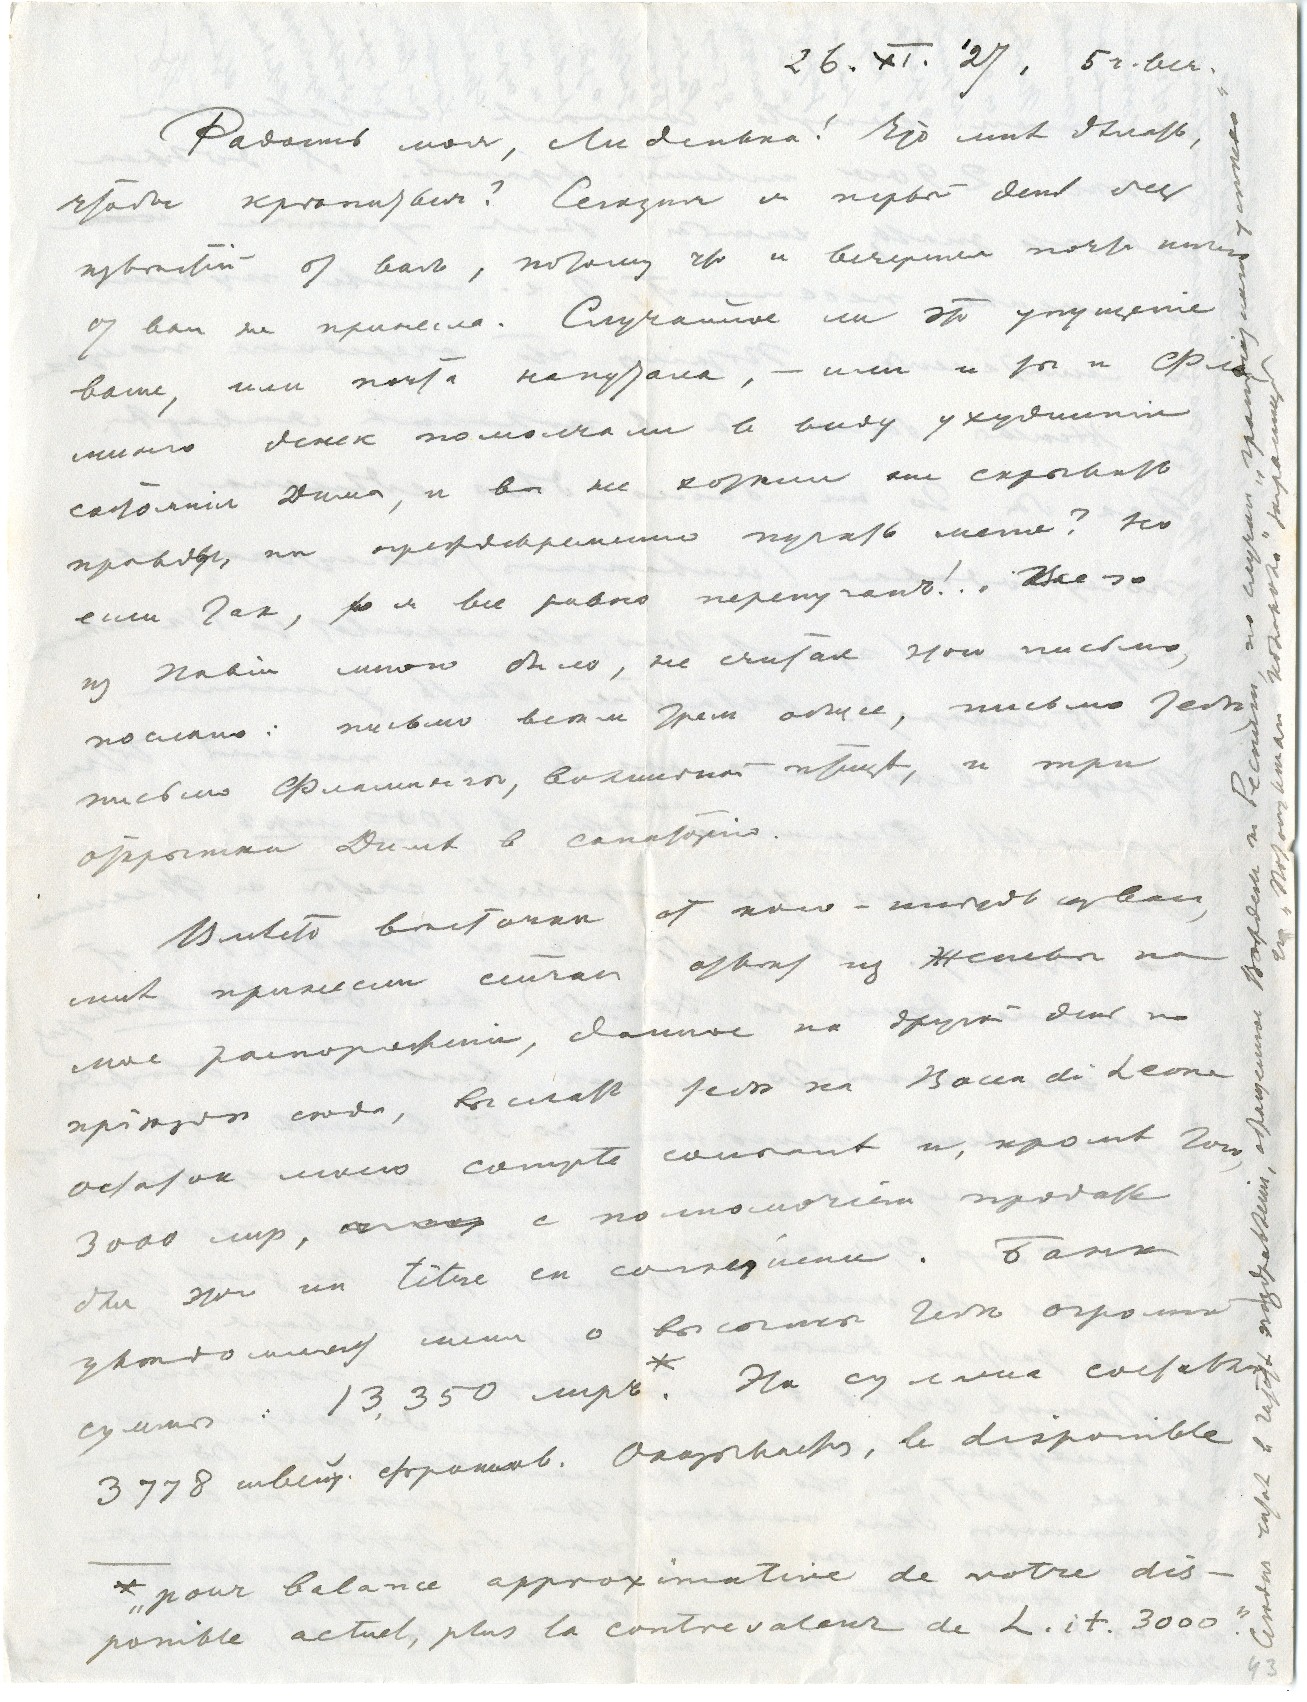 26. XI. '27, 5 ч. веч.
Радость моя, Лиденька! Что мнѣ дѣлать,
чтобы крѣпиться? Сегодня я первый день без
извѣстій от вас, потому что и вечерняя почта ничего
от вас не принесла. Случайное ли это упущеніе
ваше, или почта напутала, — или и ты и Фла
минго денек помолчали в виду ухудшенія
состоянія Димы, и вы не хотѣли ни скрывать
правды, ни преждевременно пугать меня? Но
если так, то я все равно перепуган!.. Же то
из Павіи много было, не считая этого письма,
послано: письмо всѣм трем общее, письмо тебѣ
письмо Фламинго, птицѣ, и три
открытки Димѣ в санаторію.
Вмѣсто вѣсточки от кого-нибудь из вас,
мнѣ принесли сейчас отвѣт из Женевы на
мое распоряженіе, данное на другой день по
пріѣздѣ сюда, выслать тебѣ на Bocca di Leone
остаток моего compte courant и, кромѣ того,
3000 лир, с полномочіем продать
для этого un titre en conséquence. Банк
увѣдомляет меня о высылкѣ тебѣ огромной
суммы: 13,350 лиръ*. Эта сумма составила
3778 швейц. франков. Оказывается, le disponible
* „pour balance approximative de votre dis-
ponible actuel, plus la contrevaleur de L. it. 3000."
поздравленіи, обращенное по случаю „
и „
43